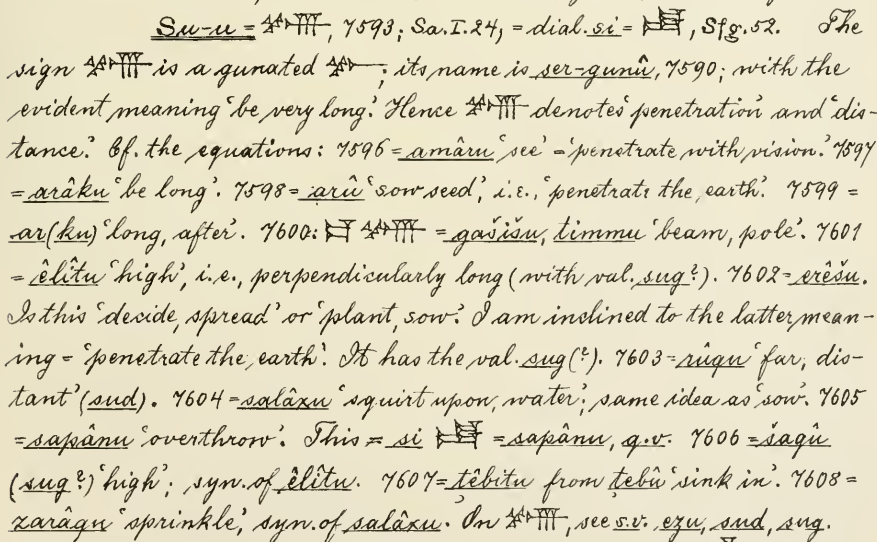 Su-u = 𒋤, 7593; Sa.I.24, = dial. si = , Sfg. 52. The
sign 𒋤 is a gunated ; its name is ser-gunû, 7590; with the
evident meaning 'be very long.' Hence 𒋤 denotes 'penetration' and 'dis-
tance.' Cf. the equations: 7596 = amâru 'see' = 'penetrate with vision.' 7597
= arâku 'be long'. 7598 = arû 'sow seed', i.e., 'penetrate the earth'. 7599 =
ar(ku) 'long, after'. 7600: 𒋤 = gašišu, timmu 'beam, pole'. 7601
= êlîtu 'high', i.e., perpendicularly long (with val. sug?). 7602 = erêšu.
Is this 'decide, spread' or 'plant, sow.' I am inclined to the latter mean-
ing = 'penetrate the earth'. It has the val. sug(?). 7603 = rûqu 'far, dis-
tant' (sud). 7604 = salâxu 'squirt upon, water'; same idea as 'sow'. 7605
= sapânu 'overthrow'. This = si = sapânu, q.v. 7606 = šaqû
(sug?) 'high'; syn. of êlîtu. 7607 = ṭêbitu from ṭebû 'sink in'. 7608 =
zarâqu 'sprinkle,' syn. of salâxu. On 𒋤, see s.v. ezu, sud, sug.